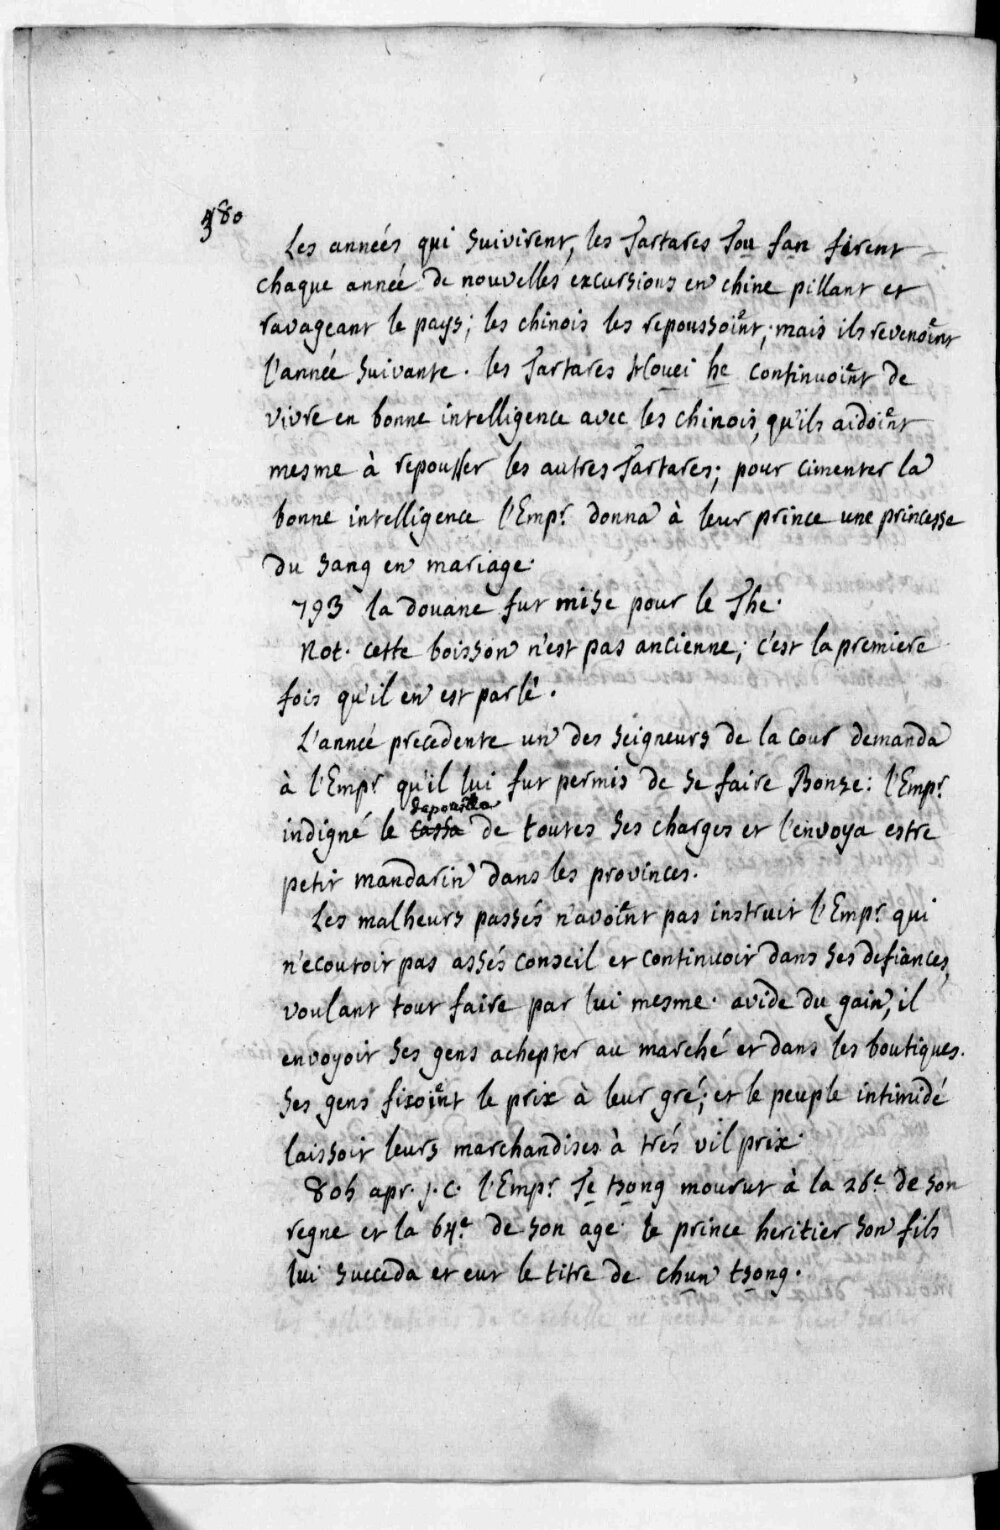 380
Les années qui suivirent, les Tartares Tou fan firent
chaque année de nouvelles excursions en chine pillant et
ravageant le pays; les chinois les repoussoient; mais ils revenoient
l'année suivante. les Tartares Houei he continuoient de
vivre en bonne intelligence avec les chinois, qu'ils aidoient
mesme à repousser les autres Tartares; pour cimenter la
bonne intelligence l'Empr. donna à leur prince une princesse
du sang en mariage.
793 la douane fut mise pour le The.
Not. cette boisson n'est pas ancienne; c'est la premiere
fois qu'il en est parlé.
L'année precedente un des seigneurs de la cour demanda
à l'Empr. qu'il lui fut permis de se faire Bonze: l'Empr.
depouilla
indigné le cassa de toutes ses charges et l'envoya estre
petit mandarin dans les provinces.
Les malheurs passés n'avoient pas instruit l'Empr. qui
n'ecoutoit pas assés conseil et continuoit dans ses defiances,
voulant tout faire par lui mesme. avide du gain, il
envoyoit ses gens achepter au marché et dans les boutiques.
ses gens fixoient le prix à leur gré; et le peuple intimidé
laissoit leurs marchandises à trés vil prix.
805 apr. j. c. l'Empr. Te tsong mourut à la 26e. de son
regne et la 64e. de son age. le prince heritier son fils
lui succeda et eut le titre de chun tsong.